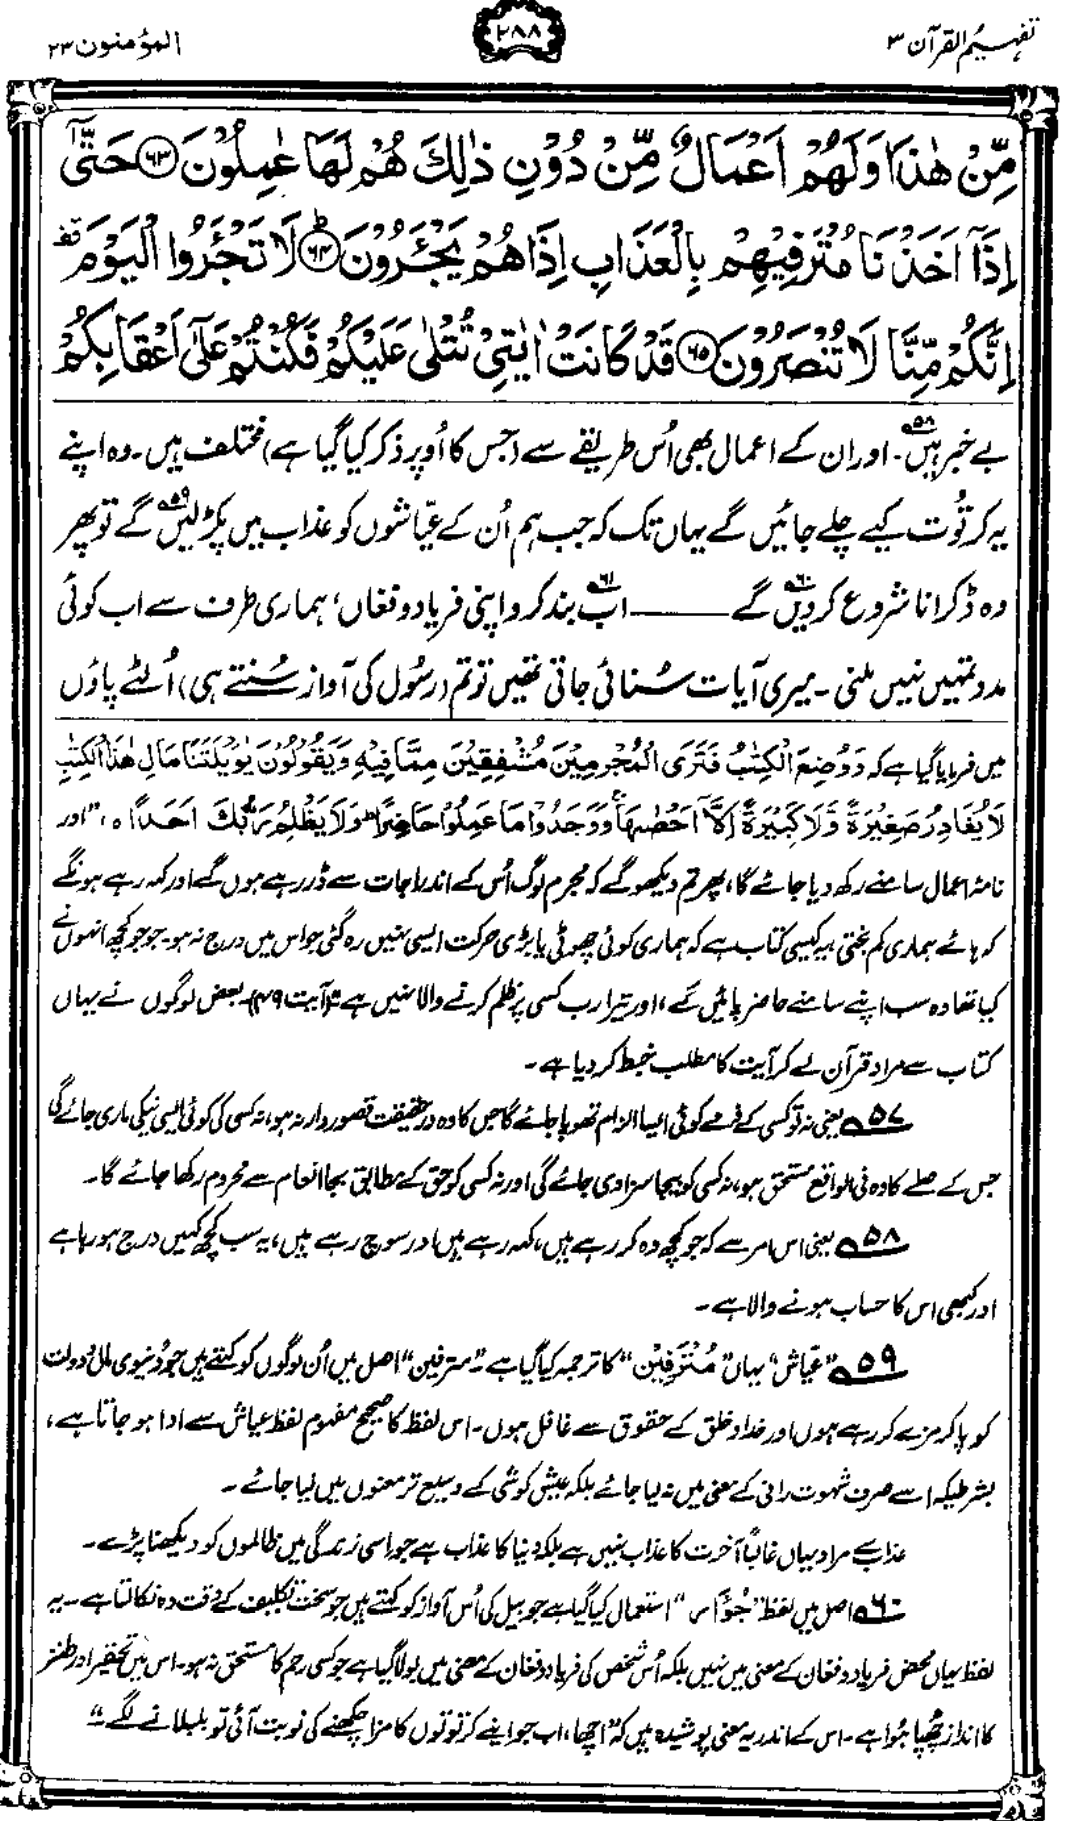 تفہیم القرآن ۳
۲۸۸
المؤمنون ۲۳
مِّنْ هٰذَا وَلَهُمْ اَعْمَالٌ مِّنْ دُوْنِ ذٰلِكَ هُمْ لَهَا عٰمِلُوْنَ ﴿۶۳﴾ حَتّٰۤى
اِذَاۤ اَخَذْنَا مُتْرَفِيْهِمْ بِالْعَذَابِ اِذَا هُمْ يَجْـَٔرُوْنَ ؕ﴿۶۴﴾ لَا تَجْـَٔرُوا الْيَوْمَ قف
اِنَّكُمْ مِّنَّا لَا تُنْصَرُوْنَ ﴿۶۵﴾ قَدْ كَانَتْ اٰيٰتِيْ تُتْلٰى عَلَيْكُمْ فَكُنْتُمْ عَلٰۤى اَعْقَابِكُمْ
بے خبر ہیں۵۸۔ اور ان کے اعمال بھی اُس طریقے سے (جس کا اُوپر ذکر کیا گیا ہے) مختلف ہیں۔ وہ اپنے
یہ کرتُوت کیے چلے جائیں گے یہاں تک کہ جب ہم اُن کے عیّاشوں کو عذاب میں پکڑ لیں۵۹ گے تو پھر
وہ ڈکرانا شروع کر دیں۶۰ گے ـــــــ اب۶۱ بند کرو اپنی فریاد و فغاں، ہماری طرف سے اب کوئی
مدد تمہیں نہیں ملنی۔ میری آیات سُنائی جاتی تھیں تو تم (رسُول کی آواز سُنتے ہی) اُلٹے پاؤں
میں فرمایا گیا ہے کہ وَوُضِعَ الْكِتٰبُ فَتَرَى الْمُجْرِمِيْنَ مُشْفِقِيْنَ مِمَّا فِيْهِ وَيَقُوْلُوْنَ يٰوَيْلَتَنَا مَالِ هٰذَا الْكِتٰبِ
لَا يُغَادِرُ صَغِيْرَةً وَّلَا كَبِيْرَةً اِلَّاۤ اَحْصٰىهَا ۚ وَوَجَدُوْا مَا عَمِلُوْا حَاضِرًا ؕ وَلَا يَظْلِمُ رَبُّكَ اَحَدًا ۵، "اور
نامۂ اعمال سامنے رکھ دیا جائے گا، پھر تم دیکھو گے کہ مجرم لوگ اُس کے اندراجات سے ڈر رہے ہوں گے اور کہہ رہے ہونگے
کہ ہائے ہماری کم بختی یہ کیسی کتاب ہے کہ ہماری کوئی چھوٹی یا بڑی حرکت ایسی نہیں رہ گئی جو اس میں درج نہ ہو۔ جو جو کچھ انہوں نے
کیا تھا وہ سب اپنے سامنے حاضر پائیں گے، اور تیرا رب کسی پر ظلم کرنے والا نہیں ہے" (آیت ۴۹)۔ بعض لوگوں نے یہاں
کتاب سے مراد قرآن لے کر آیت کا مطلب خبط کر دیا ہے۔
۵۷ یعنی نہ تو کسی کے ذمے کوئی ایسا الزام تھوپا جائے گا جس کا وہ درحقیقت قصوروار نہ ہو، نہ کسی کی کوئی ایسی نیکی ماری جائے گی
جس کے صلے کا وہ فی الواقع مستحق ہو، نہ کسی کو بیجا سزا دی جائے گی اور نہ کسی کو حق کے مطابق بجا انعام سے محروم رکھا جائے گا۔
۵۸ یعنی اس امر سے کہ جو کچھ وہ کر رہے ہیں، کہہ رہے ہیں اور سوچ رہے ہیں، یہ سب کچھ کہیں درج ہو رہا ہے
اور کبھی اس کا حساب ہونے والا ہے۔
۵۹ "عیّاش" یہاں "مُتْرَفِیْن" کا ترجمہ کیا گیا ہے۔ "مترفین" اصل میں اُن لوگوں کو کہتے ہیں جو دُنیوی مال و دولت
کو پا کر مزے کر رہے ہوں اور خدا و خلق کے حقوق سے غافل ہوں۔ اس لفظ کا صحیح مفہوم لفظ عیاش سے ادا ہو جاتا ہے،
بشرطیکہ اسے صرف شہوت رانی کے معنی میں نہ لیا جائے بلکہ عیش کوشی کے وسیع تر معنوں میں لیا جائے۔
عذاب سے مراد یہاں غالباً آخرت کا عذاب نہیں ہے بلکہ دُنیا کا عذاب ہے جو اسی زندگی میں ظالموں کو دیکھنا پڑے۔
۶۰ اصل میں لفظ "جُؤَار" استعمال کیا گیا ہے جو بیل کی اُس آواز کو کہتے ہیں جو سخت تکلیف کے وقت وہ نکالتا ہے۔ یہ
لفظ یہاں محض فریاد و فغاں کے معنی میں نہیں بلکہ اُس شخص کی فریاد و فغاں کے معنی میں بولا گیا ہے جو کسی رحم کا مستحق نہ ہو۔ اس میں تحقیر اور طنز
کا انداز چُھپا ہُوا ہے۔ اس کے اندر یہ معنی پوشیدہ ہیں کہ "اچھا، اب جو اپنے کرتوتوں کا مزا چکھنے کی نوبت آئی تو بلبلانے لگے"۔